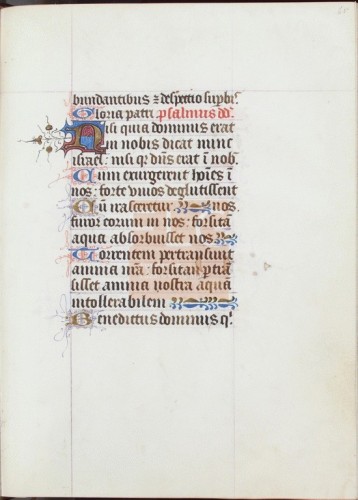 bundantibus ⁊ despectio sup̄bis
Gloria patri psalmus dd̄.
Nisi quia dominus erat
in nobis dicat nunc
israel: nisi qr dūs erat ī nob̄.
Cum exurgerent hoīes ī
nos: forte viuos deglutissent
Cū irasceretur nos
furor eorum in nos: forsitā
aqua absorbuisset nos
Torrentem pertransiuit
anima nr̄a: forsitan ptrā
sisset anima nostra aquā
intollerabilem
Benedictus dominus q'